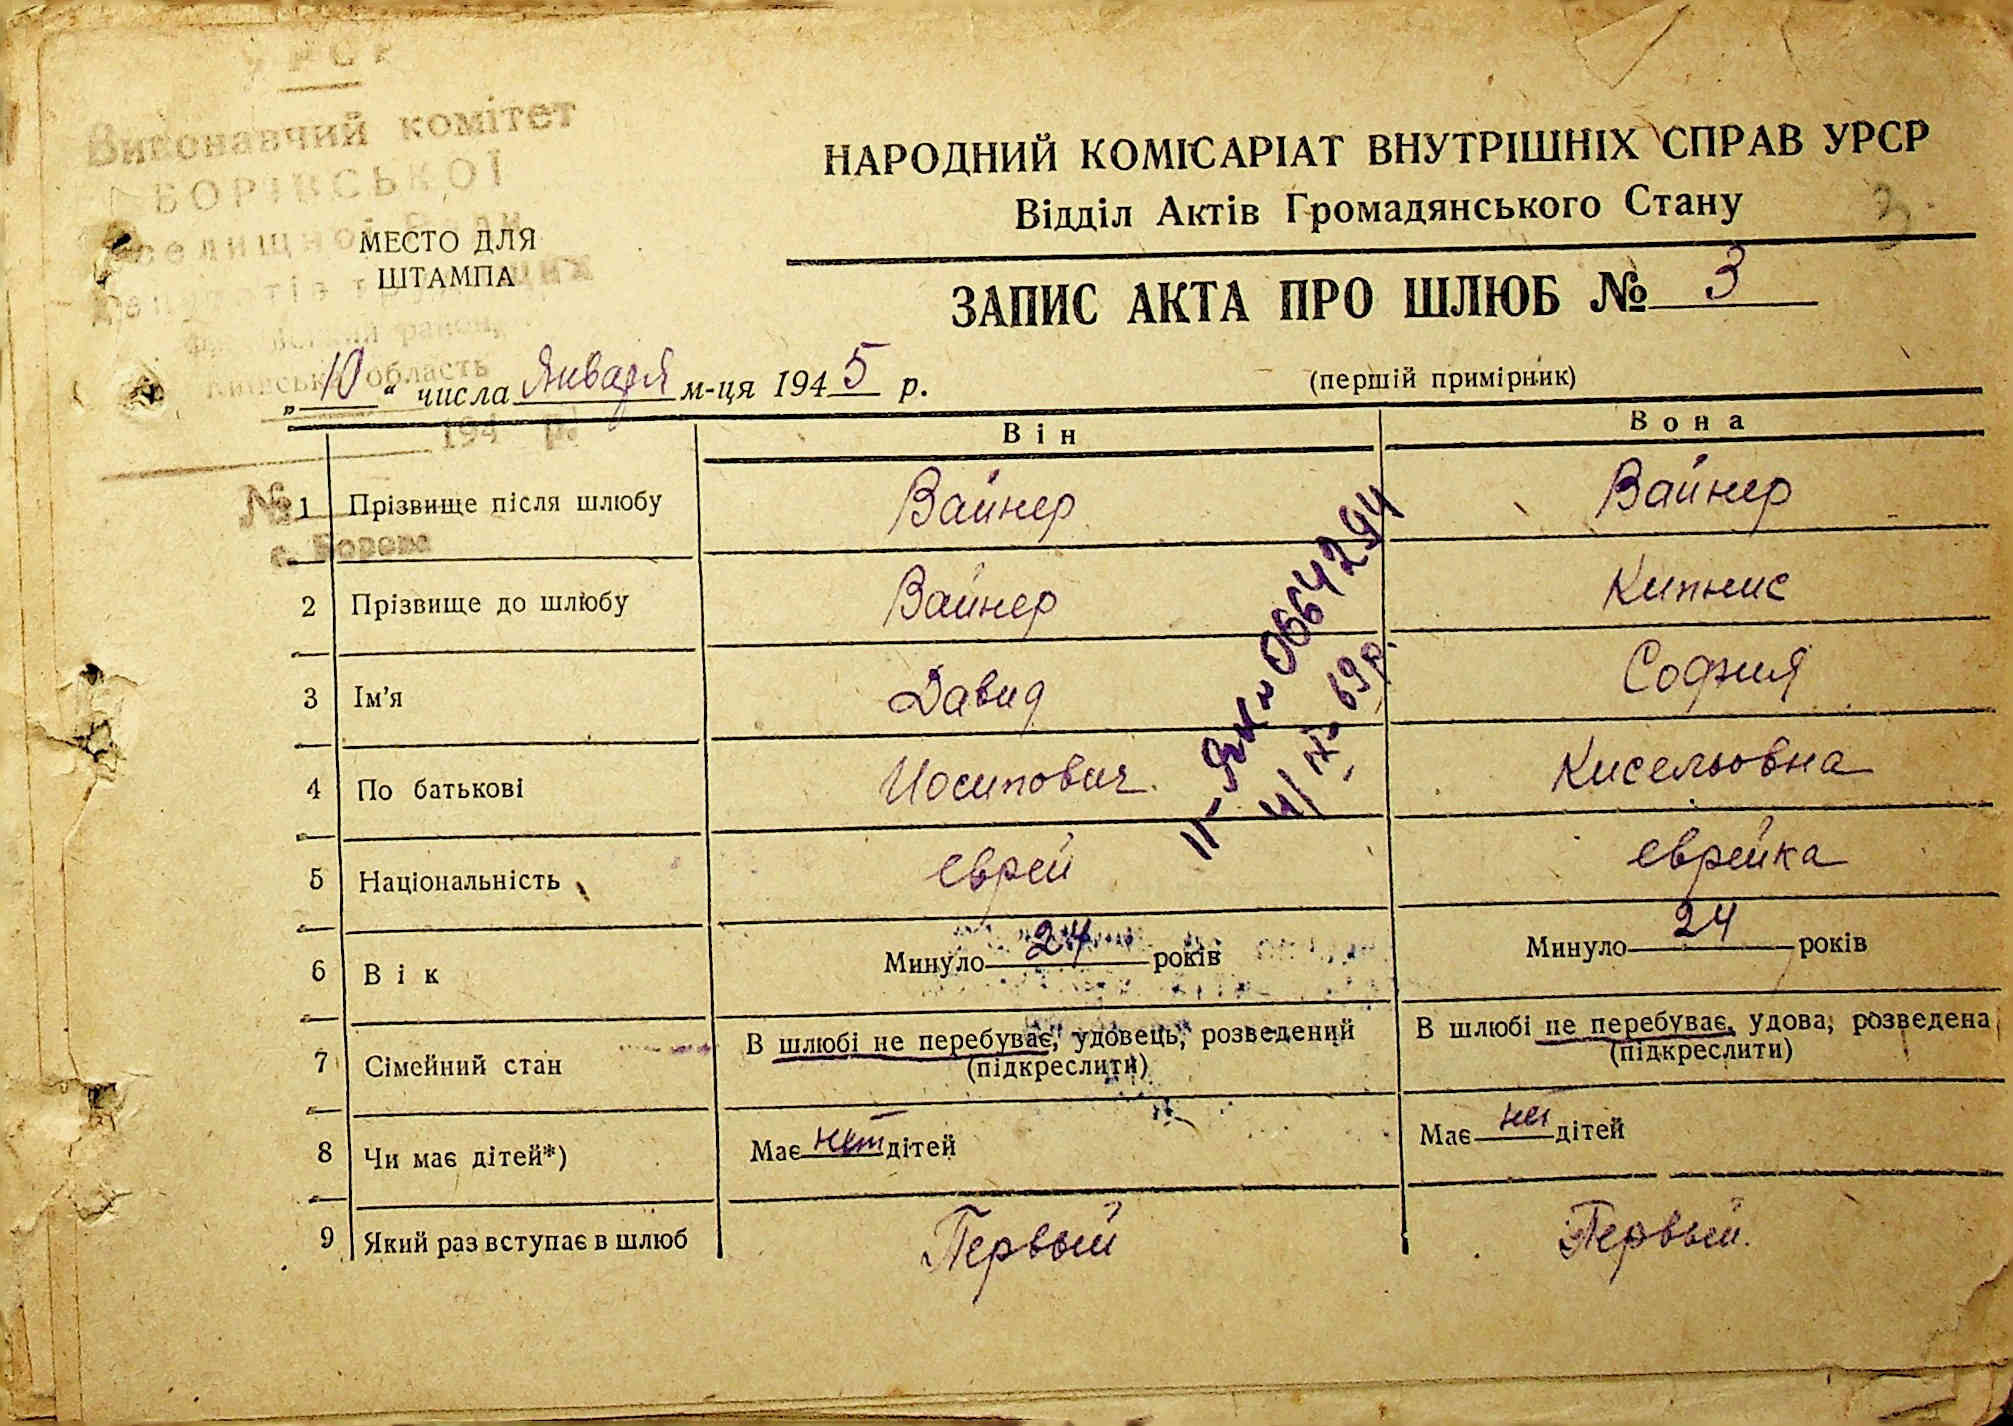 УРСР
Виконавчий комітет
БОРІВСЬКОЇ
селищної Ради
депутатів трудящих
район,
Київська область
194 р.
№
с. Борова
МЕСТО ДЛЯ
ШТАМПА
НАРОДНИЙ КОМІСАРІАТ ВНУТРІШНІХ СПРАВ УРСР
Відділ Актів Громадянського Стану
3
ЗАПИС АКТА ПРО ШЛЮБ № 3
„10“ числа Января м-ця 1945 р.
(першій примірник)
Він Вона
1 Прізвище після шлюбу Вайнер Вайнер
2 Прізвище до шлюбу Вайнер Кипнис
3 Ім'я Давид София
4 По батькові Иосипович Кисельовна
5 Національність еврей еврейка
6 Вік Минуло 24 років Минуло 24 років
7 Сімейний стан В шлюбі не перебуває, удовець, розведений В шлюбі не перебуває, удова, розведена
(підкреслити) (підкреслити)
8 Чи має дітей*) Має нет дітей Має нет дітей
9 Який раз вступає в шлюб Первый Первый.
0664294
69 р.